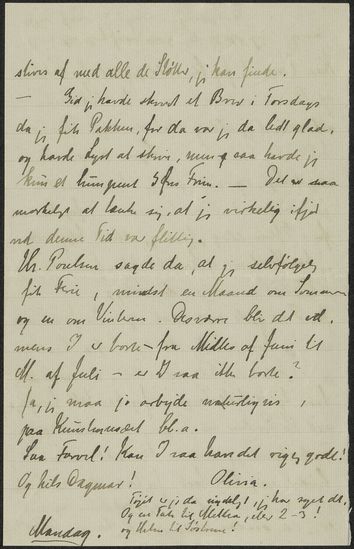 stiver af med alle de Støtter, jeg kan finde.
— Gid jeg havde skrevet et Brev i Torsdags
da jeg fik Pakken, for da var jeg da ledt glad,
og havde Lyst at skrive, men saa havde jeg
kun et lumpent 5 Øres Frim. — Det er saa
mærkeligt at tænke sig, at jeg virkelig ifjor
ved denne Tid var flittig.
Hr. Poulsen sagde da, at jeg selvfølgelig
fik Ferie, mindst en Maaned om Sommeren
og en om Vinteren. Desværre bli'r det vel
mens I er borte – fra Midten af Juni til
M. af Juli – er I saa ikke borte?
Ja, jeg maa jo arbejde naturligvis,
paa Kunstmuseet bl.a.
Saa Farvel! Kan I saa have det rigtig godt!
Og hils Dagmar! Olivia.
Tøjet er jo da nydeligt, jeg har syet det.
Og en Tak til Mellem, eller 2–3!
og Hilsen til Søstrene!
Mandag.